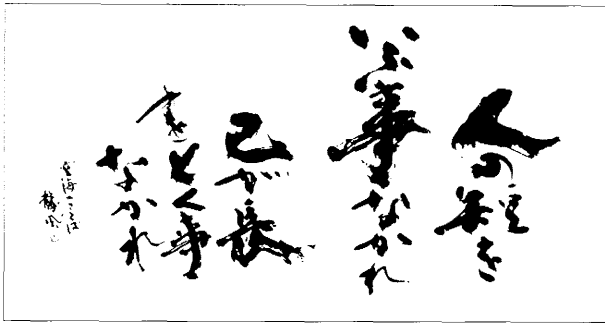 人の短を
いふ事なかれ
己が長
をとく事
なかれ
空海ことば